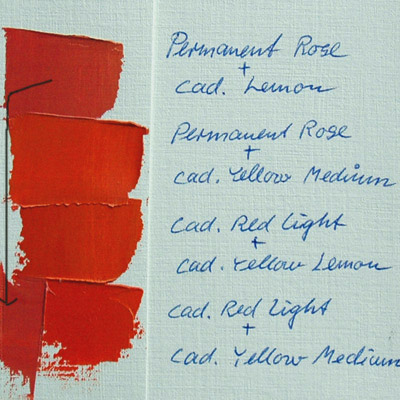 Permanent Rose
+
cad. Lemon
Permanent Rose
+
cad. Yellow Medium
cad. Red Light
+
cad. Yellow Lemon
cad. Red Light
+
cad. Yellow Medium